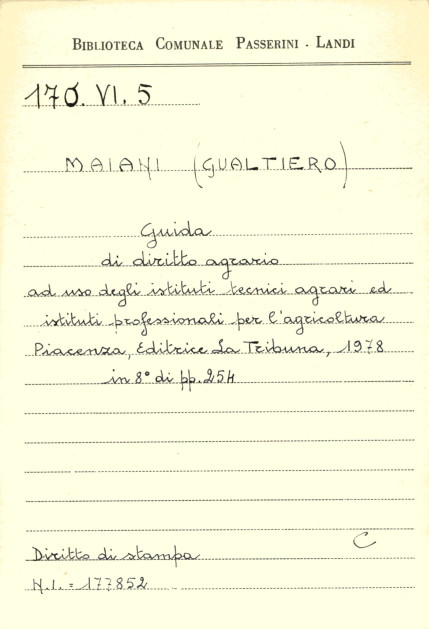 BIBLIOTECA COMUNALE PASSERINI - LANDI
170. VI. 5
MAIANI (GUALTIERO)
Guida
di diritto agrario
ad uso degli istituti tecnici agrari ed
istituti professionali per l'agricoltura
Piacenza, Editrice La Tribuna, 1978
in 8° di pp. 254
C
Diritto di stampa
N.I. = 177852